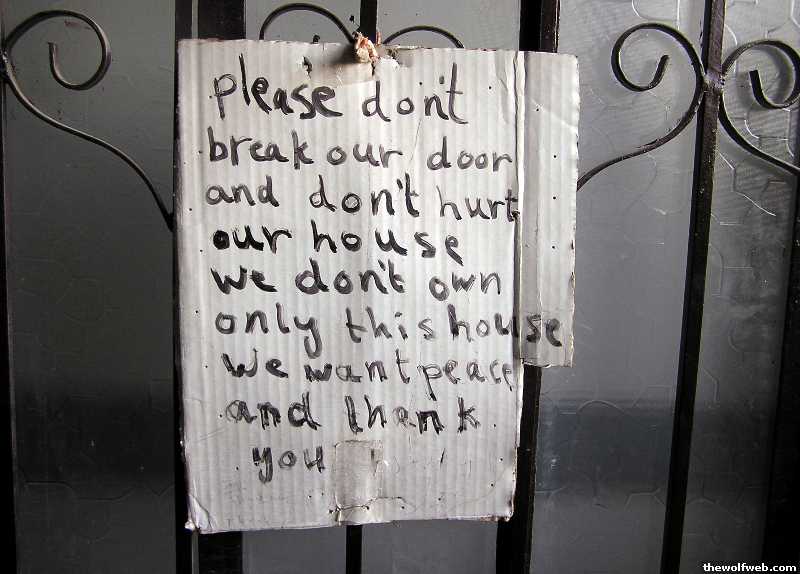 please don't
break our door
and don't hurt
our house
we don't own
only this house
we want peace
and thank
you
thewolfweb.com